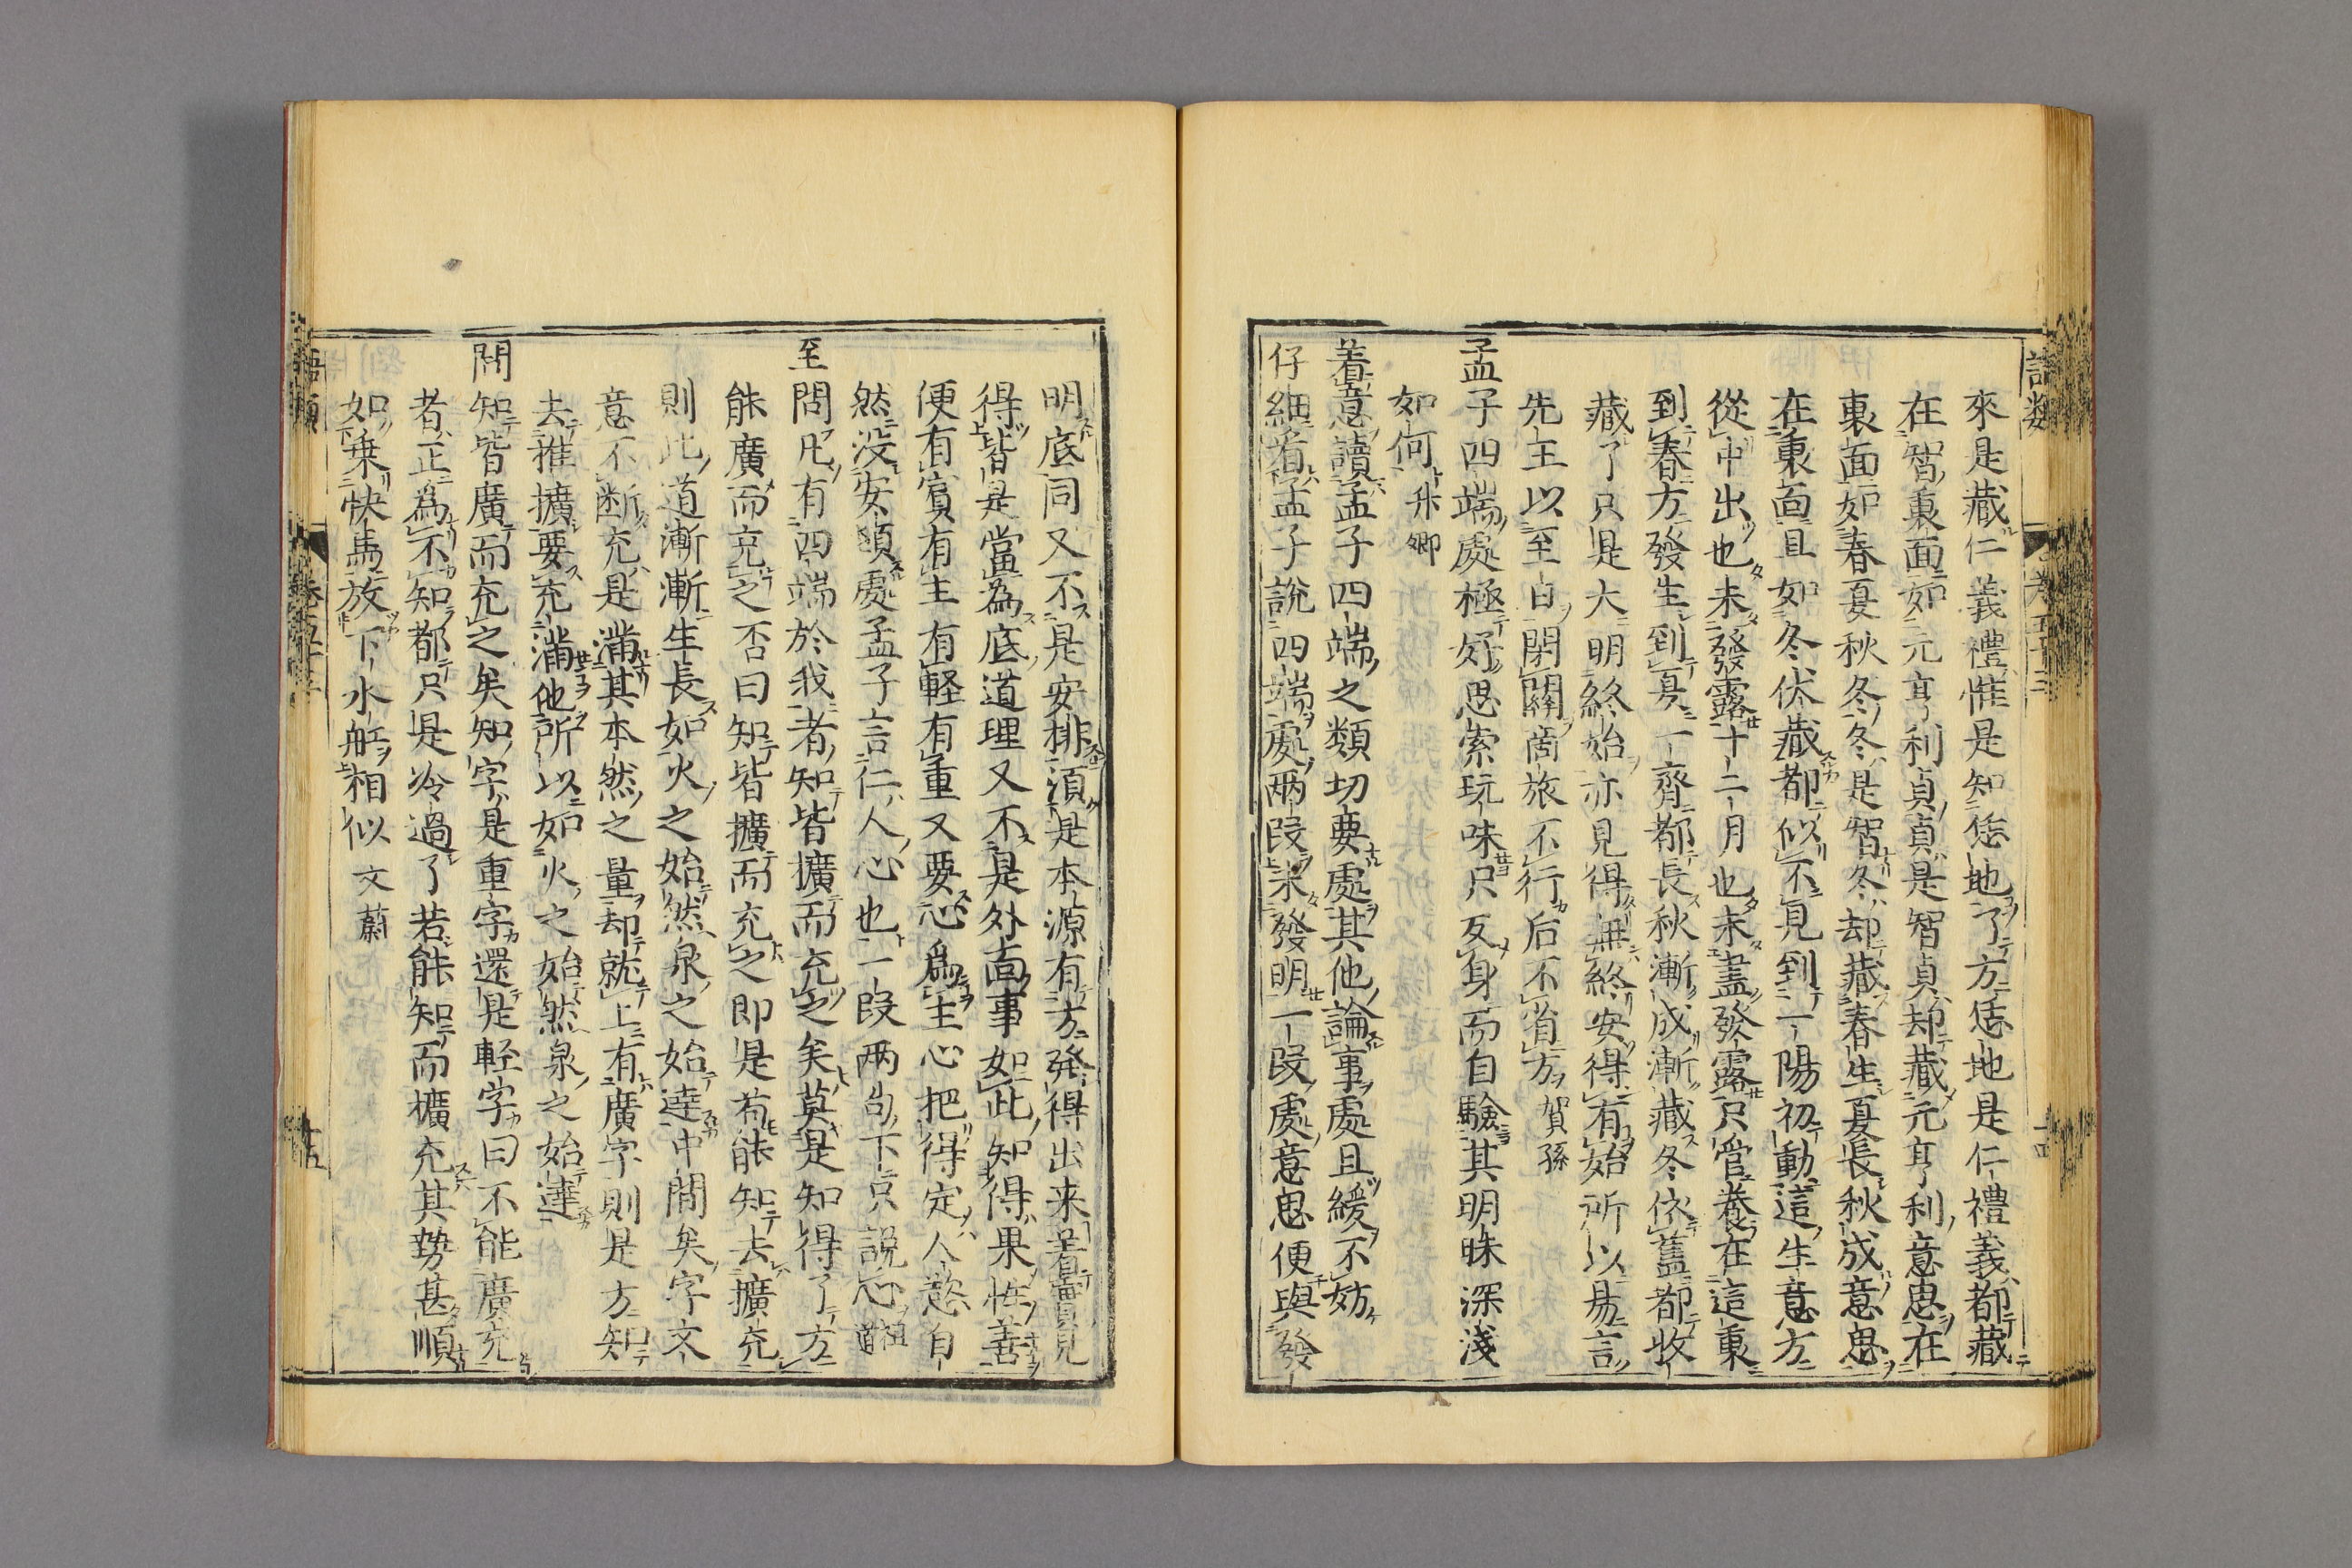 語類 卷五十三 十四
來是藏仁義禮惟是知恁地了方恁地是仁禮義都藏
在智裏面如元亨利貞貞是智貞却藏元亨利意思在
裏面如春夏秋冬冬是智冬却藏春生夏長秋成意思
在裏面且如冬伏藏都似不見到一陽初動這生意方
從中出也未發露十二月也未盡發露只管養在這裏
到春方發生到夏一齊都長秋漸成漸藏冬依舊都收
藏了只是大明終始亦見得無終安得有始所以易言
先王以至日閉關商旅不行后不省方 賀孫
孟子四端處極好思索玩味只反身而自驗其明昧深淺
如何 升卿
着意讀孟子四端之類切要處其他論事處且緩不妨
仔細看孟子說四端處兩段未發明一段處意思便與發
明底同又不是安排須是本源有方發得出来着實見
得皆是當為底道理又不是外面事如此知得果性善
便有賓有主有軽有重又要心爲主心把得定人慾自
然没安頓處孟子言仁人心也一段两句下只説心 祖道
至問凡有四端於我者知皆擴而充之矣莫是知得了方
能廣而充之否曰知皆擴而充之即是苟能知去擴充
則此道漸漸生長如火之始然泉之始逹中間矣字文
意不断充是滿其本然之量却就上有廣字則是方知
去推擴要充滿他所以如火之始然泉之始達
問知皆廣而充之矣知字是重字還是軽字曰不能廣充
者正為不知都只是冷過了若能知而擴充其勢甚順
如乗快馬放下水舡相似 文蔚
語類 卷五十三 十五